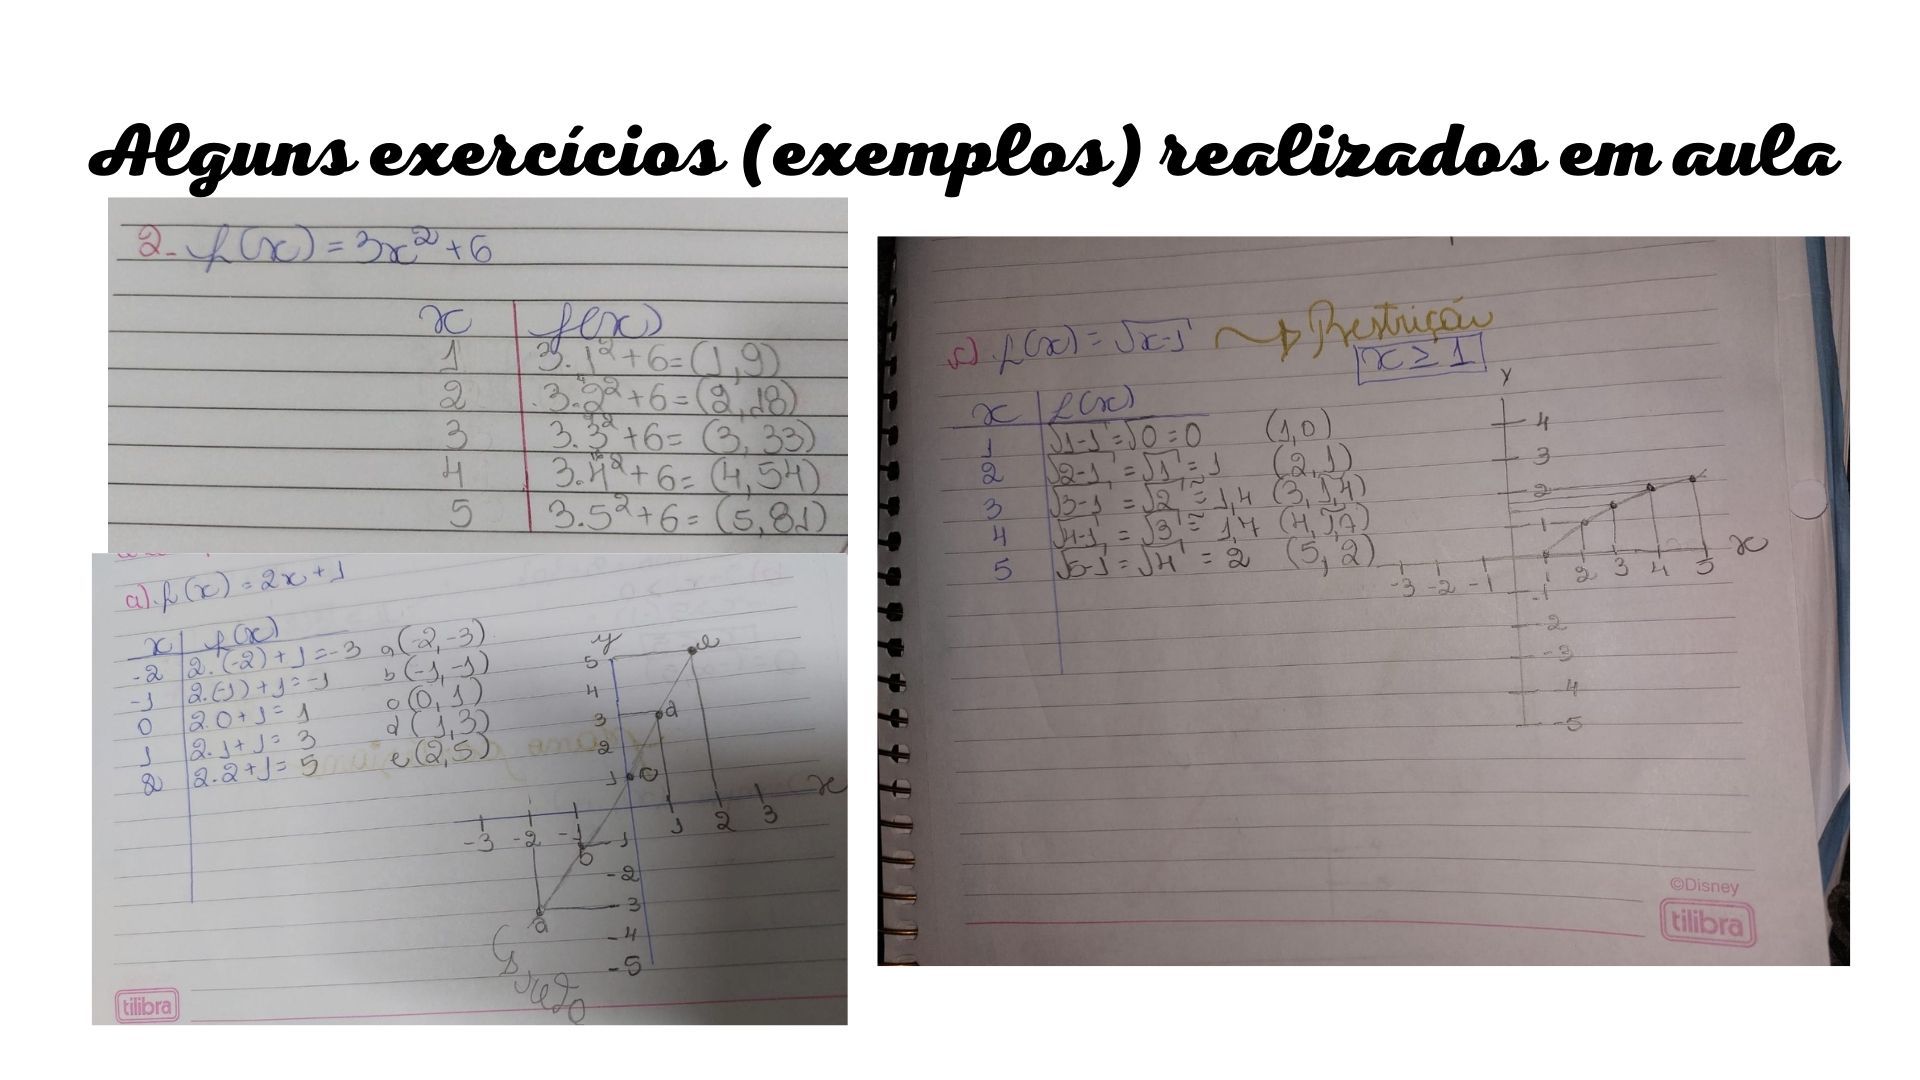 Alguns exercícios (exemplos) realizados em aula
2- f(x) = 3x² + 6
x f(x)
1 3.1² + 6 = (1, 9)
2 3.2² + 6 = (2, 18)
3 3.3² + 6 = (3, 33)
4 3.4² + 6 = (4, 54)
5 3.5² + 6 = (5, 81)
a) f(x) = 2x + 1
x f(x)
-2 2.(-2) + 1 = -3 a(-2, -3)
-1 2.(-1) + 1 = -1 b(-1, -1)
0 2.0 + 1 = 1 c(0, 1)
1 2.1 + 1 = 3 d(1, 3)
2 2.2 + 1 = 5 e(2, 5)
y
5 e
4
3 d
2
1 c
x
-3 -2 -1 1 2 3
b -1
-2
a -3
-4
-5
tilibra
c) f(x) = √x-1 Restrição
x ≥ 1
x f(x)
1 √1-1 = √0 = 0 (1, 0)
2 √2-1 = √1 = 1 (2, 1)
3 √3-1 = √2 ≅ 1,4 (3, 1,4)
4 √4-1 = √3 ≅ 1,7 (4, 1,7)
5 √5-1 = √4 = 2 (5, 2)
y
4
3
2
1
x
-3 -2 -1 1 2 3 4 5
-1
-2
-3
-4
-5
©Disney
tilibra